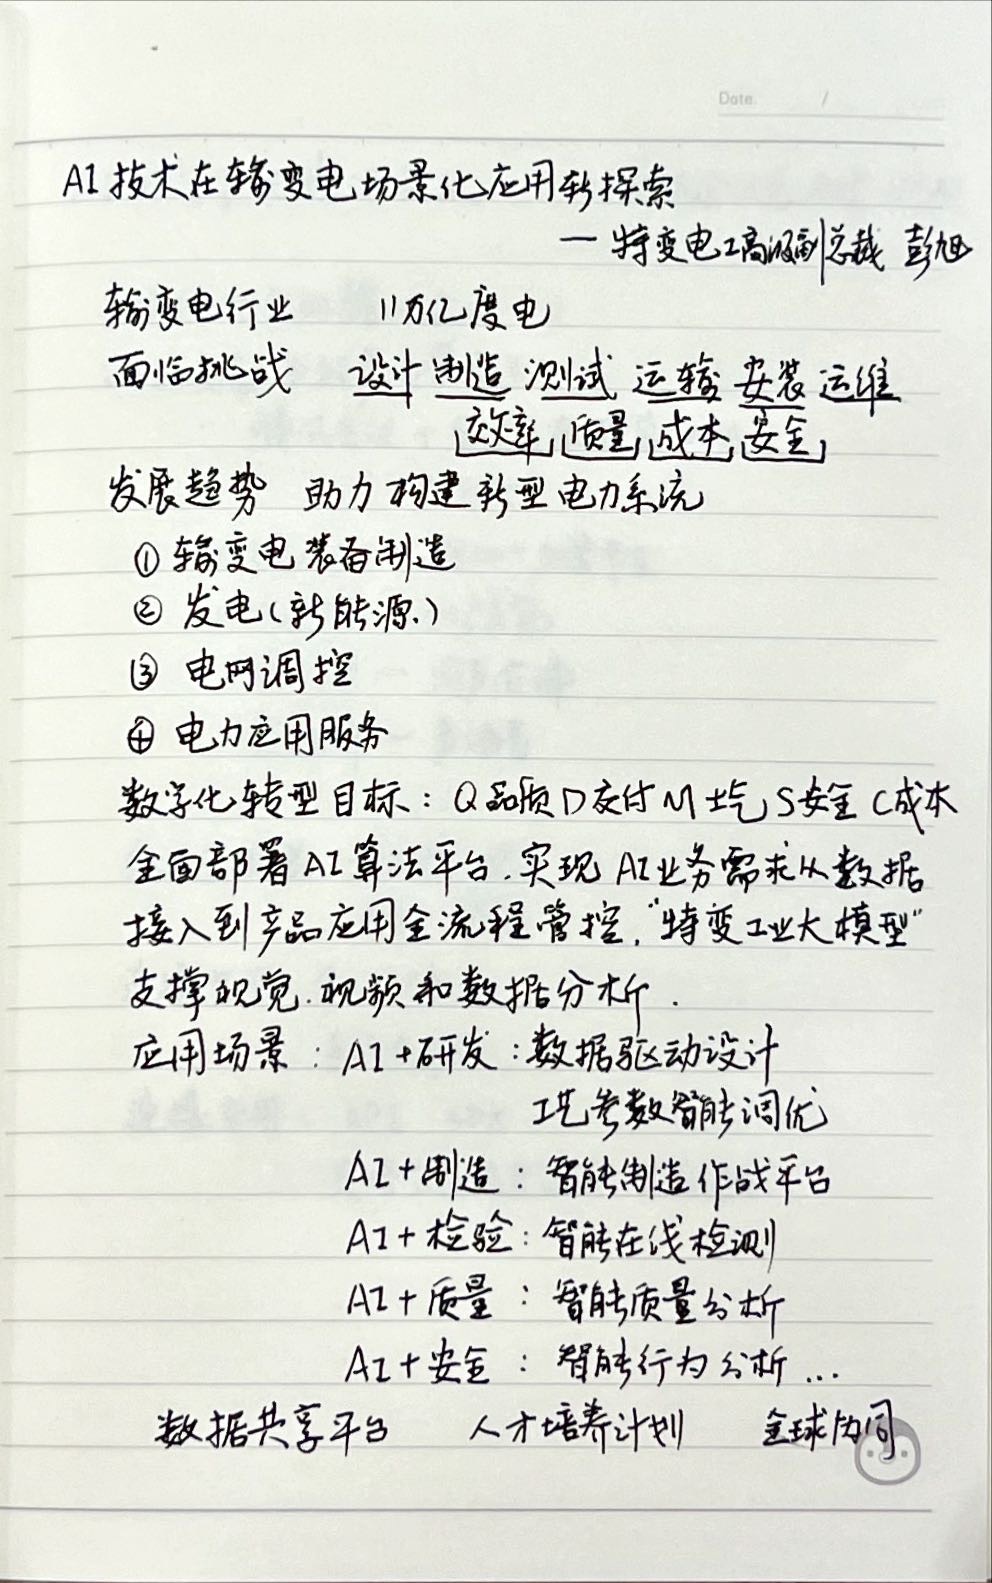 Date. /
AI技术在输变电场景化应用新探索
—特变电工高级副总裁 彭旭
输变电行业 11万亿度电
面临挑战 设计 制造 测试 运输 安装 运维
效率 质量 成本 安全
发展趋势 助力构建新型电力系统
① 输变电装备制造
② 发电(新能源)
③ 电网调控
④ 电力应用服务
数字化转型目标: Q品质 D交付 M士气 S安全 C成本
全面部署AI算法平台.实现AI业务需求从数据
接入到产品应用全流程管控,"特变工业大模型"
支撑视觉.视频和数据分析.
应用场景: AI+研发: 数据驱动设计
工艺参数智能调优
AI+制造: 智能制造作战平台
AI+检验: 智能在线检测
AI+质量: 智能质量分析
AI+安全: 智能行为分析...
数据共享平台 人才培养计划 全球协同